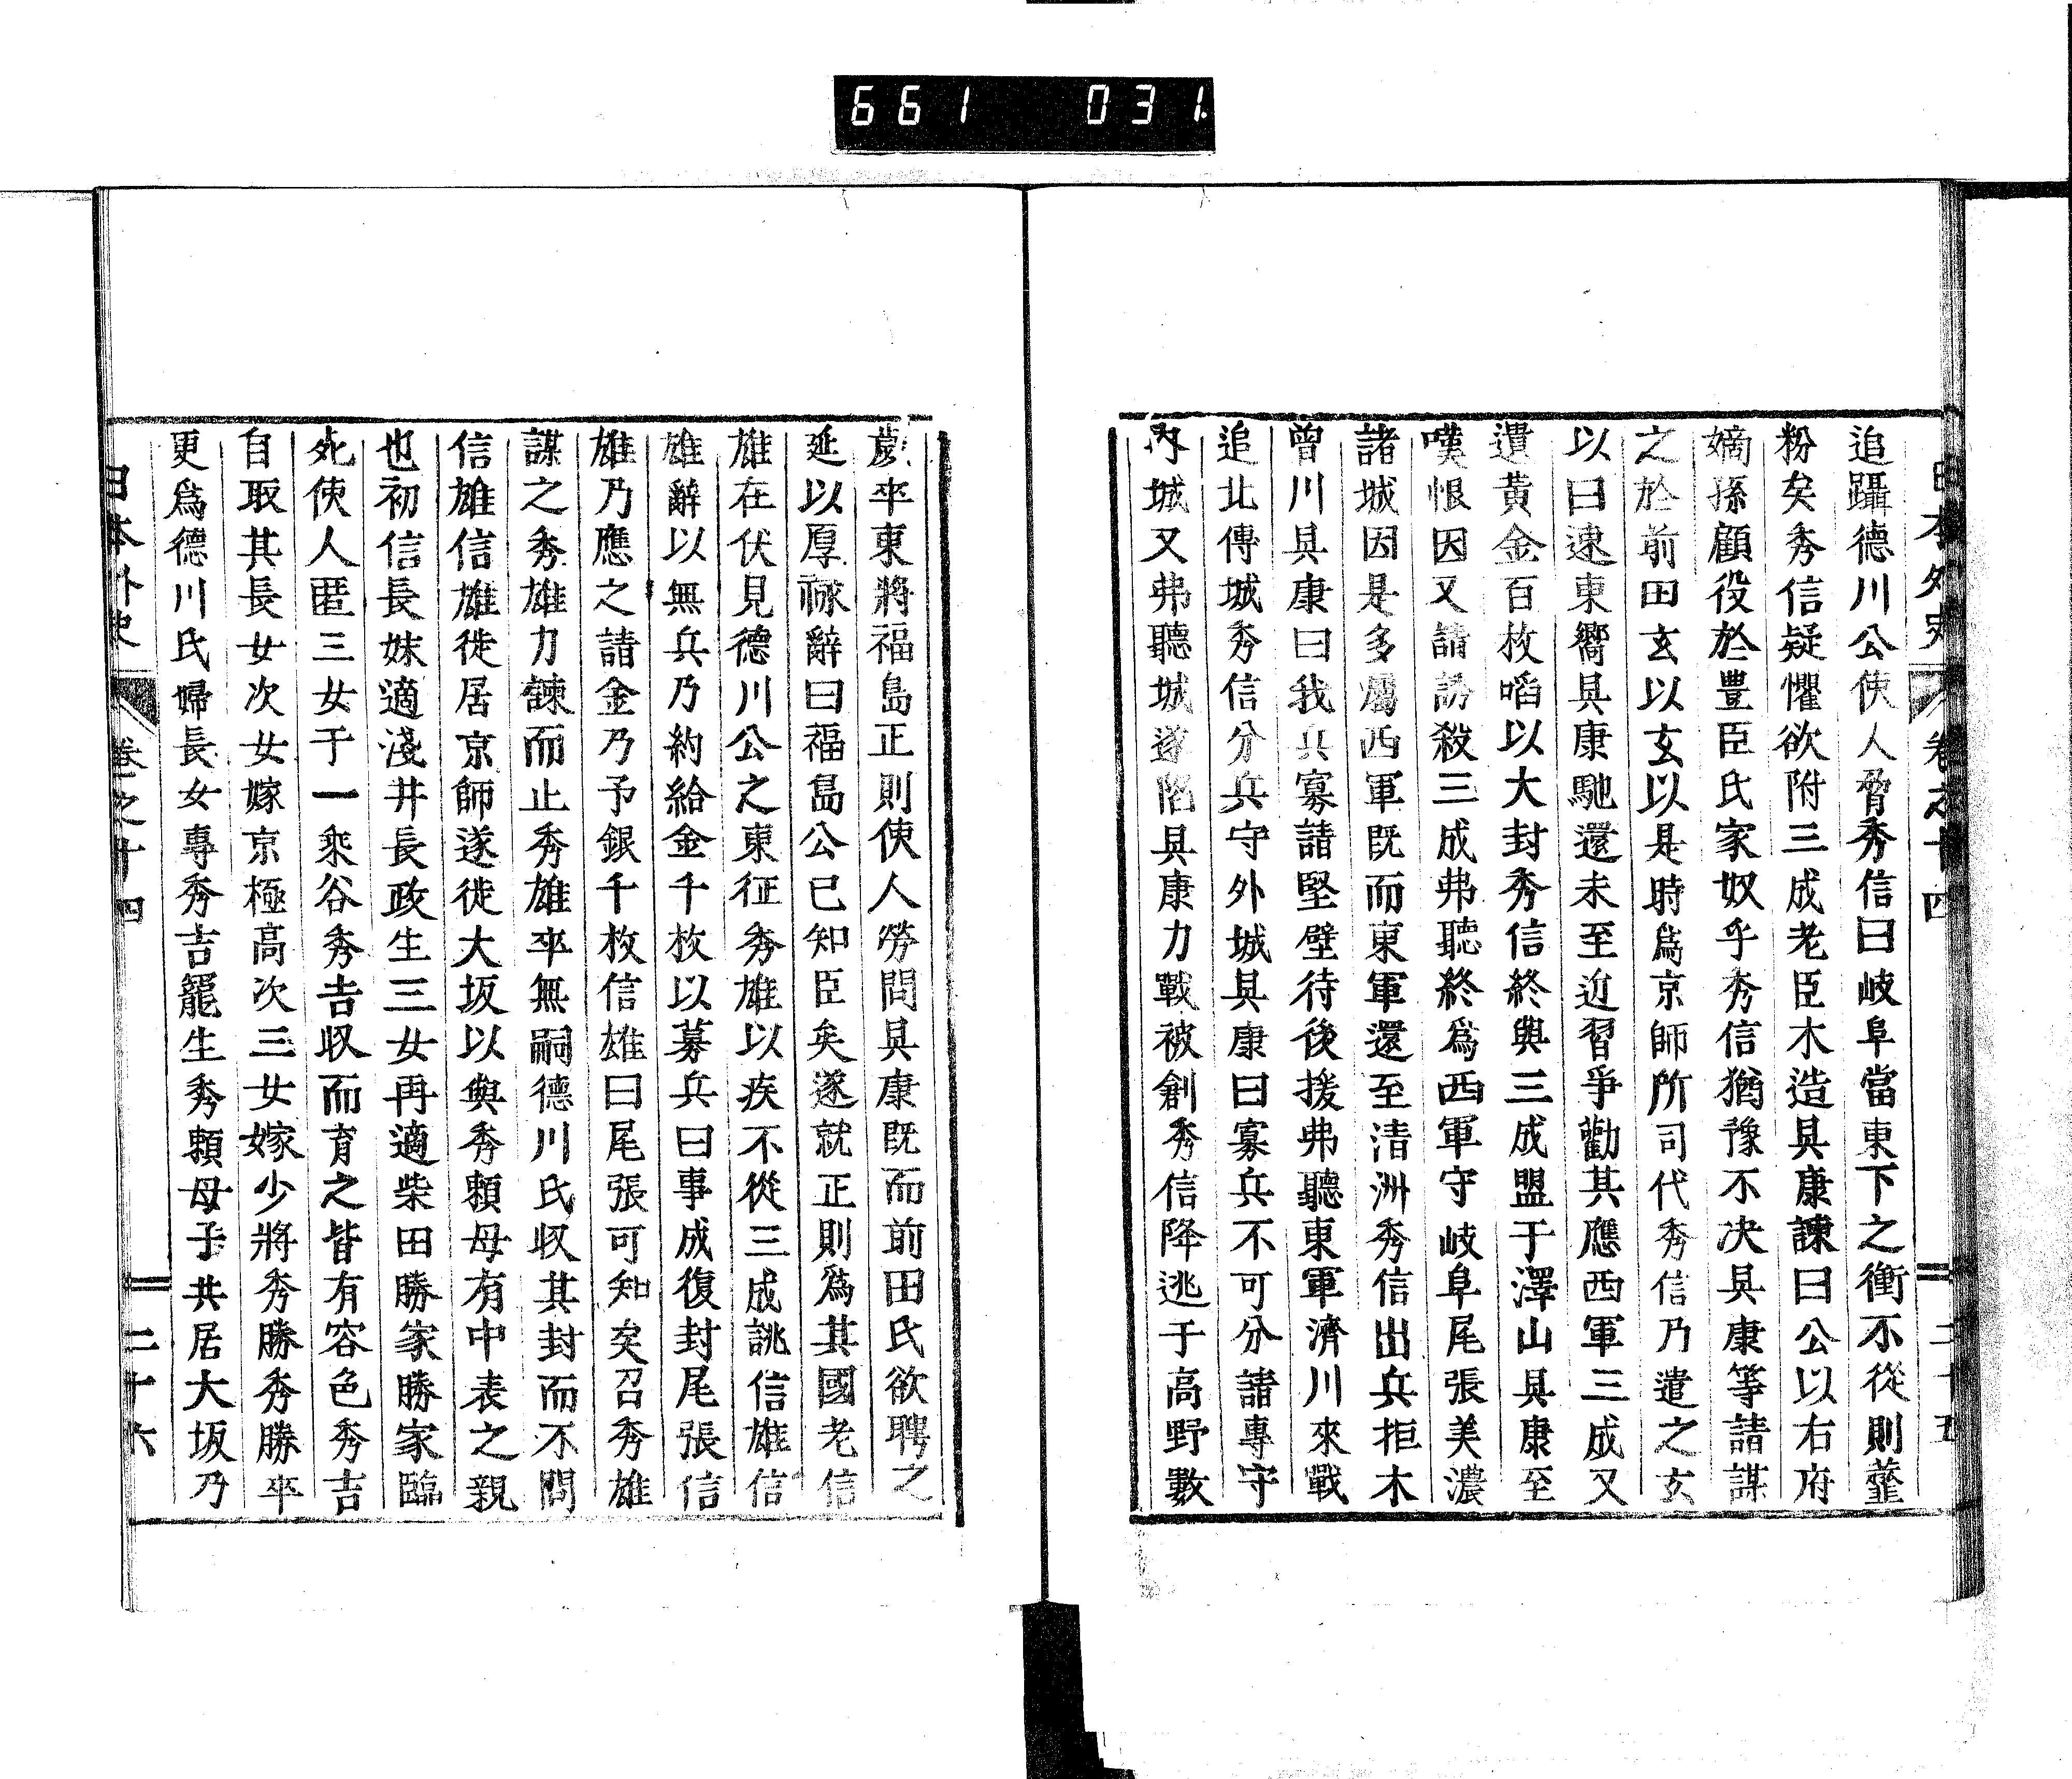 661 031
日本外史 卷之十四 二十五
追躡德川公使人脅秀信曰岐阜當東下之衝不從則虀
粉矣秀信疑懼欲附三成老臣木造具康諫曰公以右府
嫡孫顧役於豐臣氏家奴乎秀信猶豫不決具康等請謀
之於前田玄以玄以是時爲京師所司代秀信乃遣之玄
以曰速東嚮具康馳還未至近習爭勸其應西軍三成又
遺黃金百枚啗以大封秀信終與三成盟于澤山具康至
嘆恨因又請誘殺三成弗聽終爲西軍守岐阜尾張美濃
諸城因是多屬西軍既而東軍還至清洲秀信出兵拒木
曾川具康曰我兵寡請堅壁待後援弗聽東軍濟川來戰
追北傅城秀信分兵守外城具康曰寡兵不可分請專守
內城又弗聽城遂陷具康力戰被創秀信降逃于高野數
歲卒東將福島正則使人勞問具康既而前田氏欲聘之
延以厚祿辭曰福島公已知臣矣遂就正則爲其國老信
雄在伏見德川公之東征秀雄以疾不從三成誂信雄信
雄辭以無兵乃約給金千枚以募兵曰事成復封尾張信
雄乃應之請金乃予銀千枚信雄曰尾張可知矣召秀雄
謀之秀雄力諫而止秀雄卒無嗣德川氏収其封而不問
信雄信雄徙居京師遂徙大坂以與秀賴母有中表之親
也初信長妹適淺井長政生三女再適柴田勝家勝家臨
死使人匿三女于一乘谷秀吉収而育之皆有容色秀吉
自取其長女次女嫁京極高次三女嫁少將秀勝秀勝卒
更爲德川氏婦長女專秀吉寵生秀賴母子共居大坂乃
日本外史 卷之十四 二十六